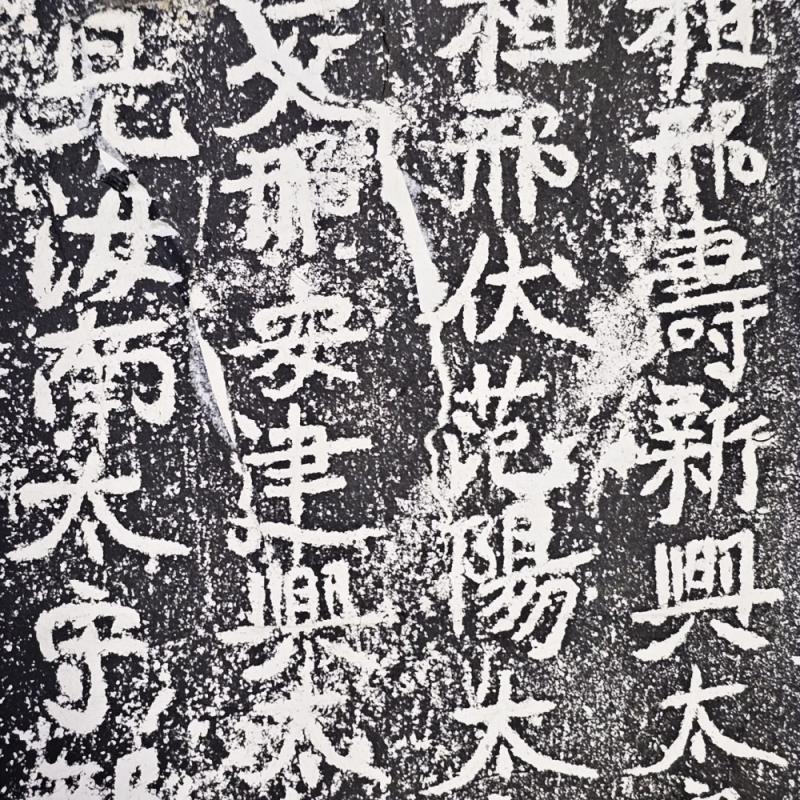 祖邢壽新興太
祖邢伏范陽太
父邢安建興太
兄汝南太守